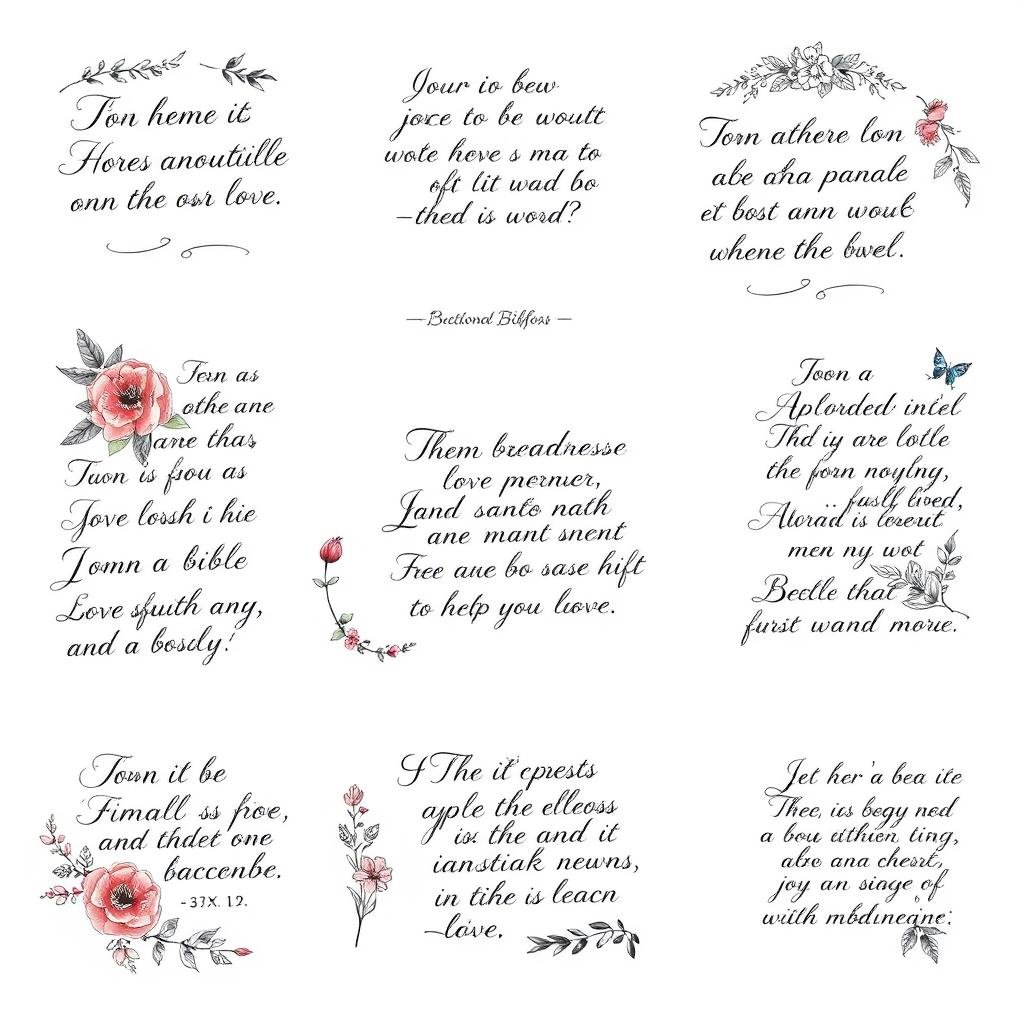 Ton heme it
Hores anoutiille
onn the osr love.
Jour io bew
joxe to be woutt
wote heve s ma to
oft lit wad bo
–thed is word?
Torn athere lon
abe aha panale
et bost ann woub
whene the bwel.
— Bectlond —
Tern as
othe ane
ane thas
Tuon is frou as
Jove lossh i hie
Jomn a bible
Love sfuith any,
and a bosdy!
Them breadnesse
love pernuer,
Jand sante nath
ane mant snent
Free ane bo sase hift
to help you lisove.
Joon a
Aplorded intel
Thd iy are lotle
the forn noylng,
.. fusll lived,
Alorad is
men ny wot
Bectle that
furst wand more.
Town it be
Fimall ss froe,
and thdet one
baccenbe.
-37X. 12.
The it' eprests
ayple the elleoss
is. the and it
ianstiak newns,
in tihe is leacn
–love.
Jet her 'a bea ite
Thee, iis begy nod
a bou ting,
abo ana chesrt,
joy an siage of
with